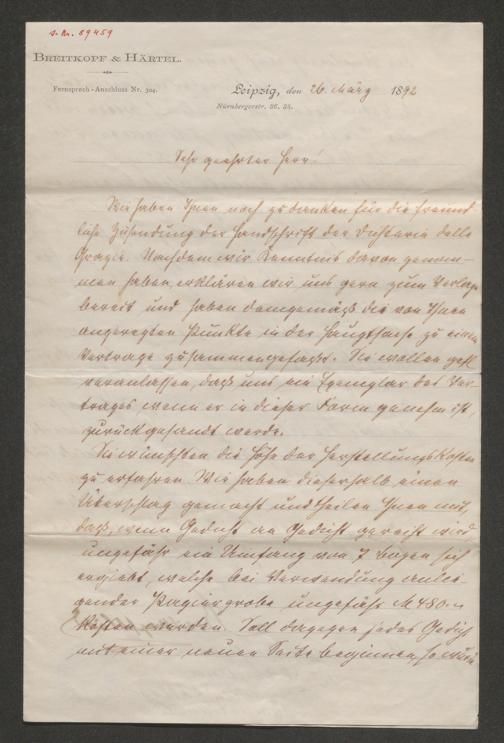 s. Nr. 59459
BREITKOPF & HÄRTEL.
Fernsprech-Anschluss Nr. 304.
Leipzig, den 26. März 1892
Nürnbergerstr. 36. 38.
Sehr geehrter Herr!
Wir haben Ihnen noch zu danken für die freund-
liche Zusendung der Handschrift der Dichterin delle
Grazie. Nachdem wir Kenntnis davon genom-
men haben, erklären wir uns gern zum Verlage
bereit und haben demgemäß die von Ihnen
angeregten Punkte in der Hauptsache zu einem
Vertrage zusammengefasst. Sie wollen gefl.
veranlassen, daß uns ein Exemplar des Ver-
trages wenn er in dieser Form genehm ist,
zurückgesandt werde.
Sie wünschten die Höhe der Herstellungskosten
zu erfahren. Wir haben dieserhalb einen
Überschlag gemacht und theilen Ihnen mit,
daß, wenn Gedicht an Gedicht gereiht wird
ungefähr ein Umfang von 7 Bogen sich
ergiebt, welche bei Verwendung anlie-
gender Papierprobe ungefähr M 480.-
kosten würden. Soll dagegen jedes Gedicht
mit einer neuen Seite beginnen, so würde